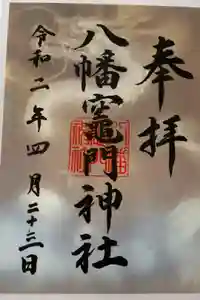 奉拝
八幡竈門神社
令和二年四月二十三日